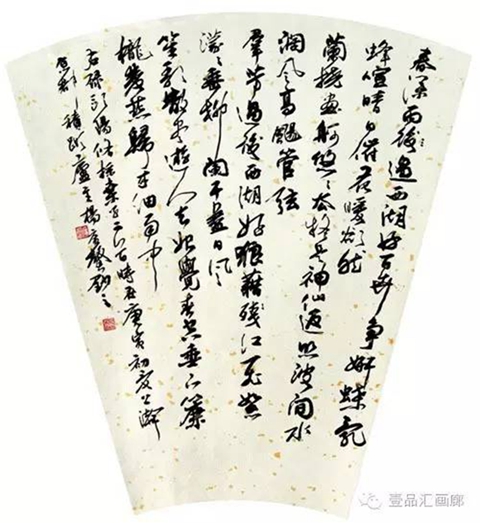 春深雨後過西湖好百卉爭妍蝶亂
蜂喧晴日催花暖欲然
蘭橈畫舸悠々去疑是神仙返照波間水
闊風高颺管絃
羣芳過後西湖好狼藉殘紅飛絮
濛々垂柳闌干盡日風
笙歌散盡遊人去始覺春空垂下簾
櫳雙燕歸來細雨中
右録歐陽修採桑子二首時在庚寅初夏上澣
廬主楊
壹品汇画廊